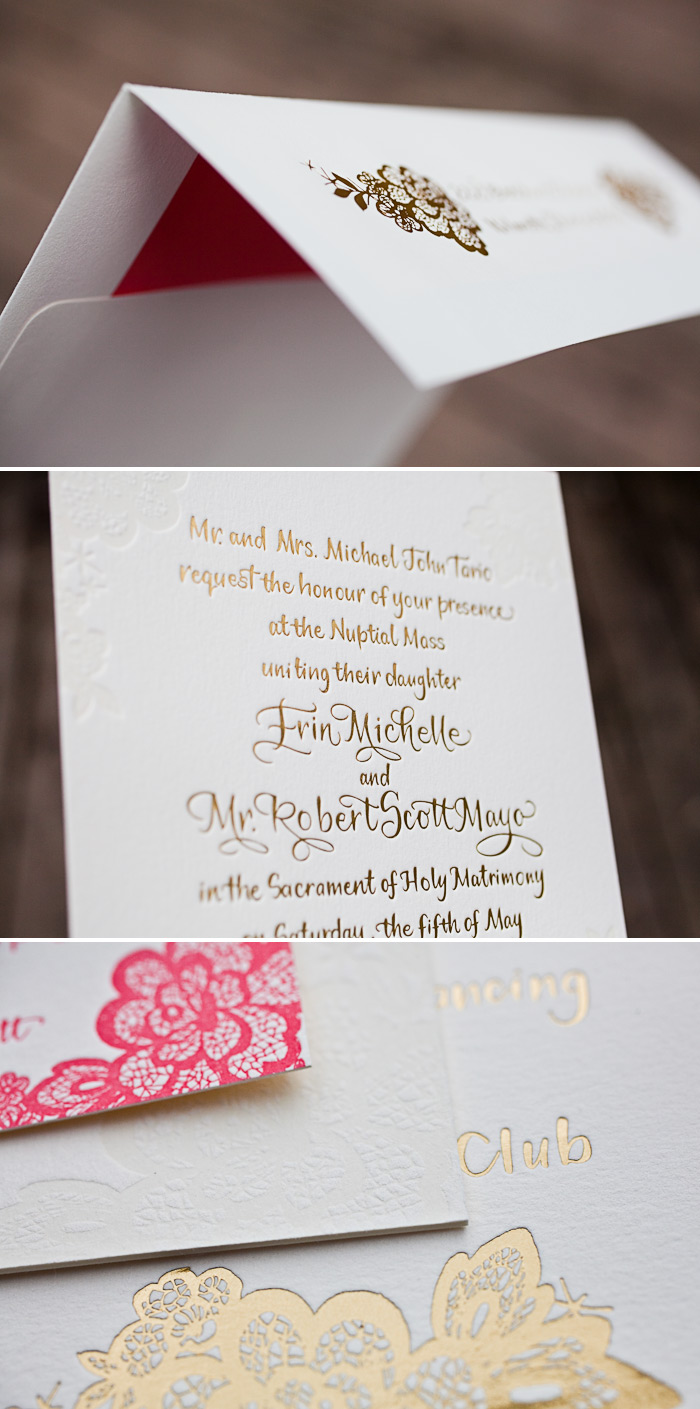 Mr. and Mrs. Michael John Tario
request the honour of your presence
at the Nuptial Mass
uniting their daughter
Erin Michelle
and
Mr. Robert Scott Mayo
in the Sacrament of Holy Matrimony
on Saturday, the fifth of May
ancing
Club